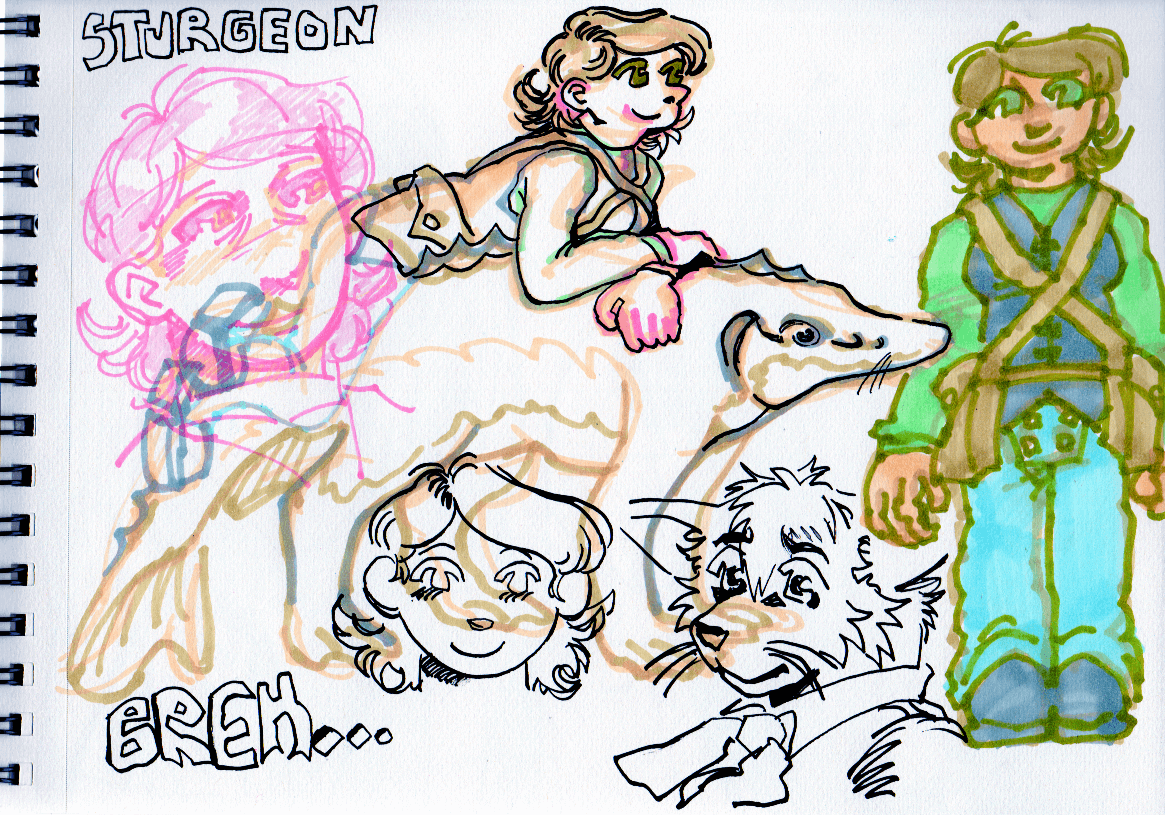 STURGEON
BREH...